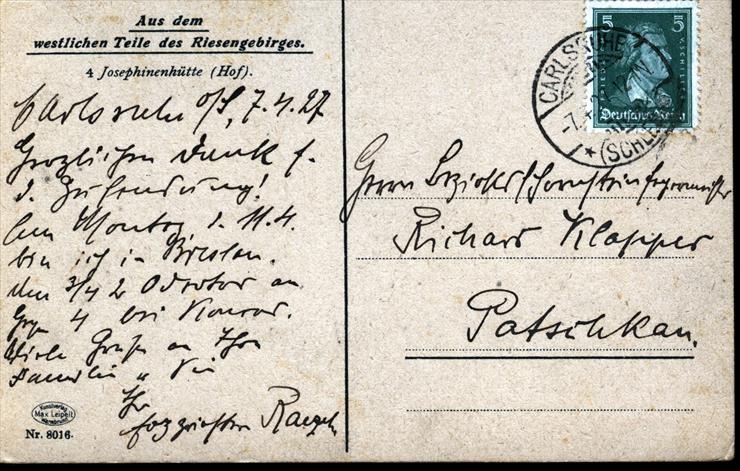 Aus dem
westlichen Teile des Riesengebirges.
4 Josephinenhütte (Hof).
Carlsruhe O/S, 7.4.27
Herzlichen Dank f.
d. Zusendung!
Am Montag, d. 11.4.
bin ich in Breslau.
an
Gegen 4 bei Konrad.
Viele Grüße an Ihre
Familie u. Sie
Ihr
Kunstverlag
Max Leipelt
Warmbrunn
Nr. 8016.
5 5
Deutsches Reich
CARLSRUHE
(SCHLES
Herrn Bezirksschornsteinfegermeister
Richard Klapper
Patschkau.